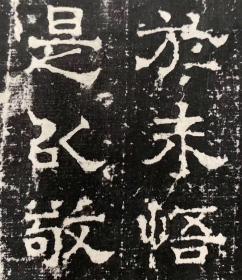 於未悟
是以敬